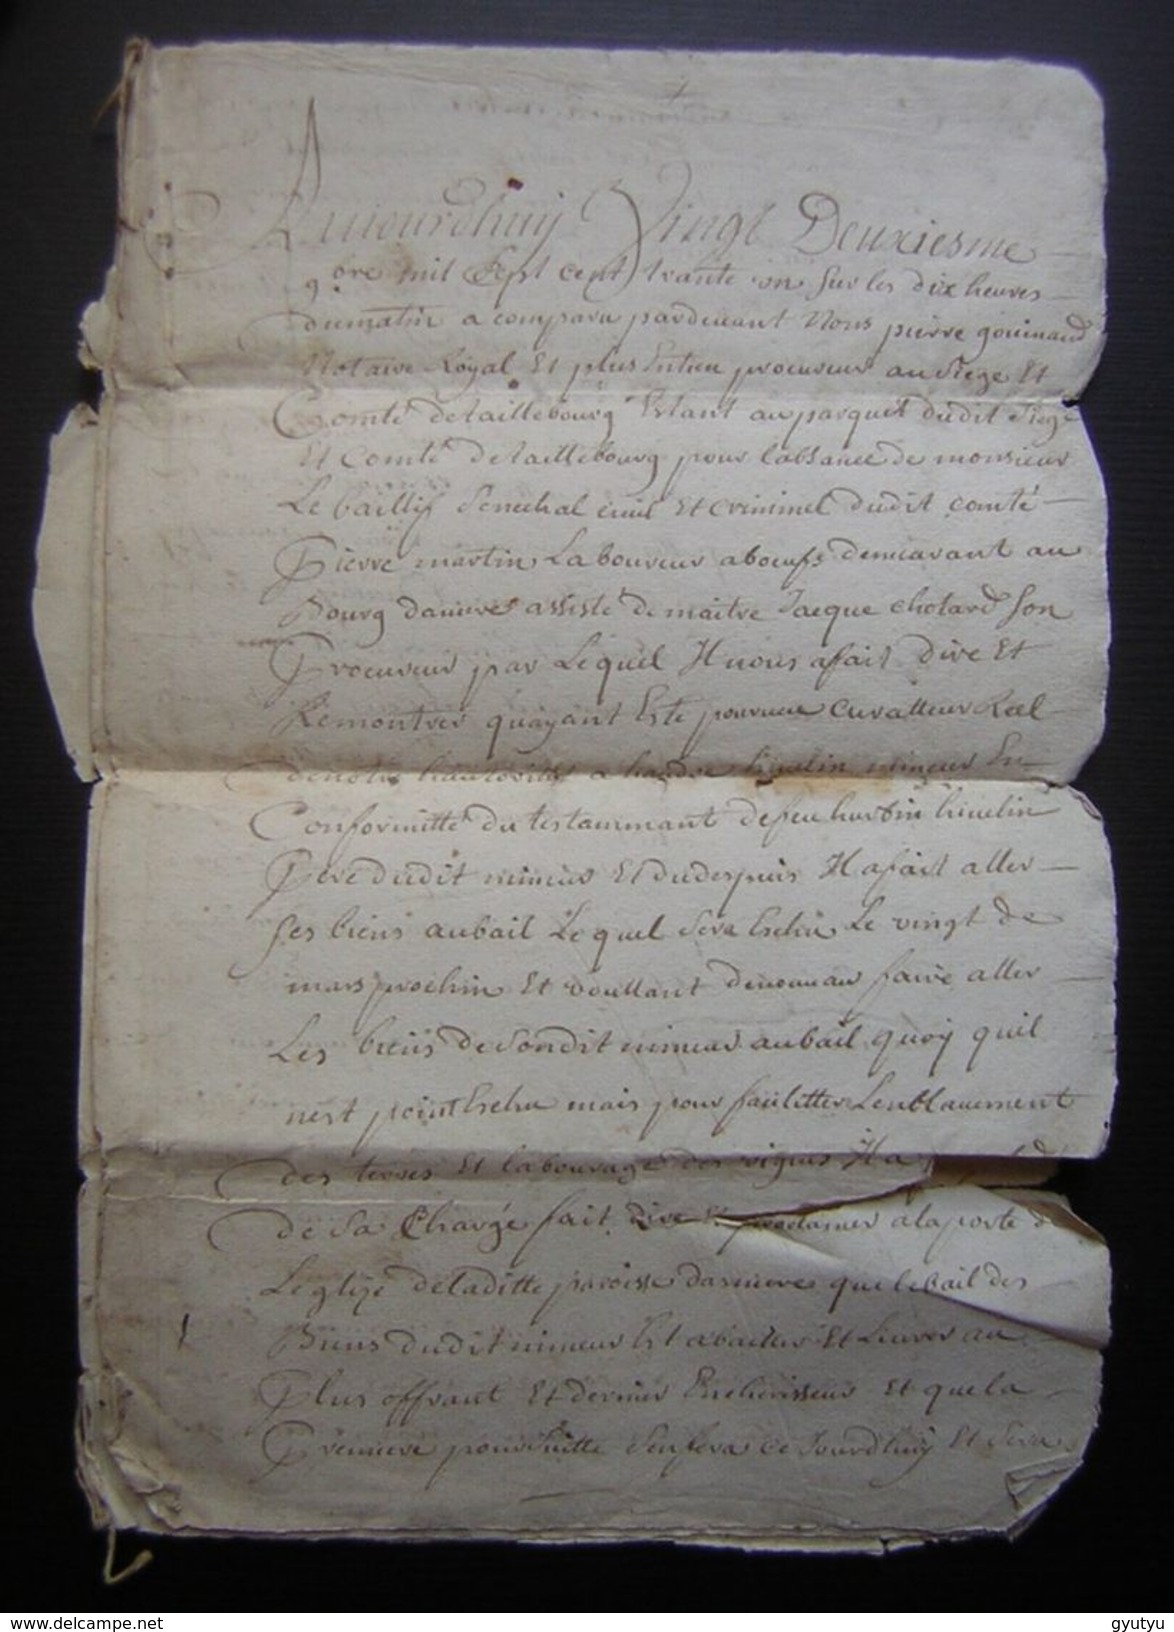 Aujourdhuy Vingt Deuxiesme
9bre mil Sept cent trante un sur les dix heures
dumatin a comparu pardevant Nous pierre gouinaud
Notaire Royal Et plus Entien procureur au Siege Et
Comté detaillebourg Estant au parquet dudit Siege
Et Comté detaillebourg pour labsance de monsieur
Le baillif Senechal civil Et criminel dudit comté
Pierre martin Laboureur aboeufs demeurant au
Bourg dannere assisté de maitre Jacque chotard son
Procureur par Lequel Il nous afait dire Et
Remontrer quayant Esté pourveu curatteur Reel
mineur En
Conformitté du testammant defeu hurbin hinelin
Pere dudit mineur Et dudespuis Il afait aller
ses biens aubail Lequel sera Eschu Le vingt de
mars prochin Et voullant denouveau faire aller
Les biens de Sondit mineur aubail quoy quil
nest point Eschu mais pour facilitter Lenblavement
des terres Et labourage des vignes Il a
de Sa Charge fait dire Et proclamer alaporte de
Leglize deladitte paroisse dannere que lebail des
Biens dudit mineur Est abailler Et Livrer au
Plus offrant Et dernier Encherisseur Et quela
Premiere poursuitte Senfera ce Jourdhuy Et sera
www.delcampe.net
gyutyu